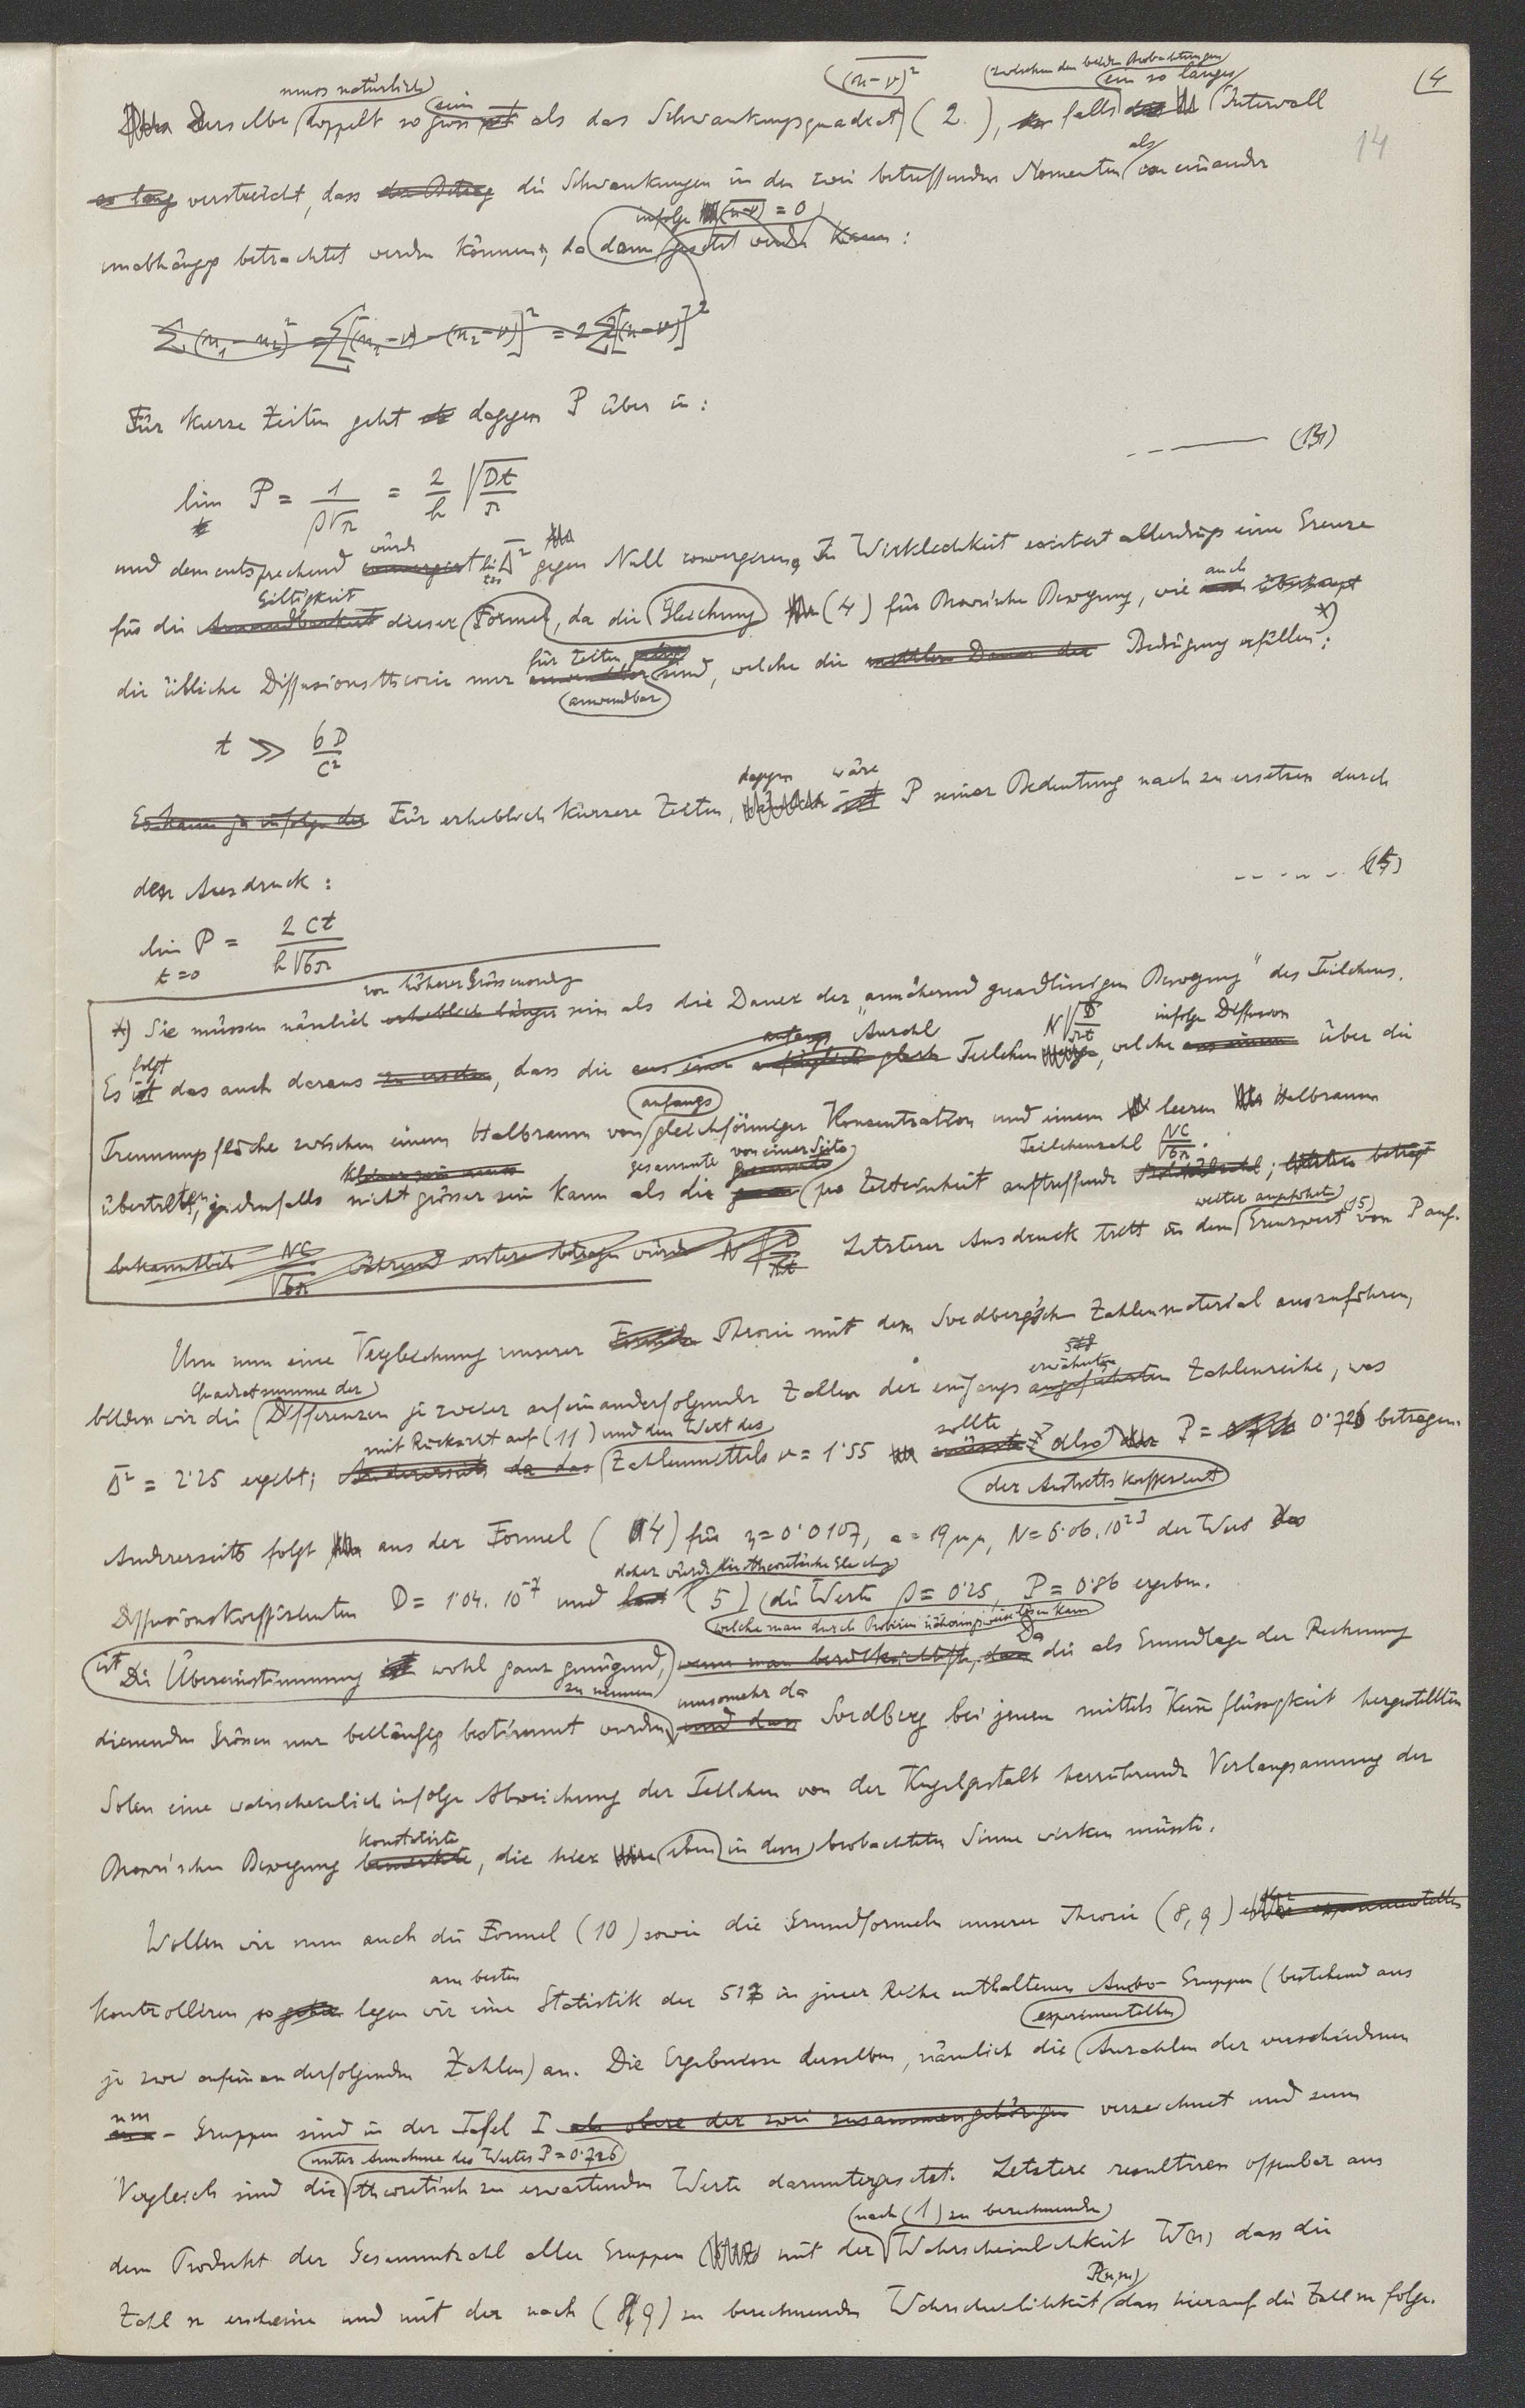 (4
14
derselbe muss natürlich doppelt so gross sein als das Schwankungsquadrat $\overline{(n-\nu)^2}$ (2.), falls zwischen den beiden Beobachtungen ein so langes Intervall
so lang verstreicht, dass der Betrag die Schwankungen in den zwei betreffenden Momenten als von einander
unabhängig betrachtet werden können, da dann infolge (n-ν) = 0 gesetzt werden kann:
Σ(n₁-n₂)² = Σ[(n₁-ν)-(n₂-ν)]² = 2Σ[(n-ν)]²
Für kurze Zeiten geht dagegen P über in:
lim P = 1/(β√π) = 2/h √(Dt/π) ---- (13)
und dementsprechend würde convergiert lim Δ² gegen Null convergieren. In Wirklichkeit existiert allerdings eine Grenze
für die Anwendbarkeit Giltigkeit dieser Formel, da die Gleichung (4) für Brown'sche Bewegung, wie auch überhaupt
die übliche Diffusionstheorie nur für Zeiten anwendbar sind, welche die mittlere Dauer der Bedingung erfüllen*):
t ≫ 6D/C²
Es kann ja infolge der Für erheblich kürzere Zeiten, dagegen wäre P seiner Bedeutung nach zu ersetzen durch
den Ausdruck: ------ (15)
lim P = 2Ct/(h√6π)
t=0
*) Sie müssen nämlich erheblich länger von höherer Grössenordg sein als die Dauer der "annähernd gradlinigen Bewegung" des Teilchens.
Es folgt das auch daraus, dass die anfangs Anzahl Teilchen N√(D/πt), welche infolge Diffusion über die
Trennungsfläche zwischen einem Halbraum von anfangs gleichförmiger Konzentration und einem leeren Halbraum
übertritt, jedenfalls kleiner sein muss nicht grösser sein kann als die gesammte von einer Seite pro Zeiteinheit auftreffende Teilchenzahl NC/√6π; letztere beträgt
bekanntlich NC/√6π während erstere betragen würde N√(D/πt) Letzterer Ausdruck tritt in dem weiter angeführten Grenzwert (15) von P auf.
Um nun eine Vergleichung unserer Theorie mit dem Svedberg'schen Zahlenmaterial auszuführen,
bilden wir die Quadratsumme der Differenzen je zweier aufeinanderfolgender Zahlen der eingangs angeführten erwähnten 518 Zahlenreihe, was
Δ² = 2·25 ergibt; Andererseits da das mit Rücksicht auf (11) und den Wert des Zahlenmittels ν = 1·55 müsste sollte also der Austrittskoeffizient P = 0·726 betragen.
Andrerseits folgt aus der Formel (14) für η = 0·0107, a = 19μμ, N = 6·06.10²³ der Wert des
Diffusionskoeffizienten D = 1·04. 10⁻⁷ und daher würde die theoretische Gleichg (5) welche man durch Probieren näherungsweise lösen kann die Werte β = 0·25 P = 0·86 ergeben.
Die Übereinstimmung ist wohl ganz genügend zu nennen, wenn man berücksichtigt, dass Da die als Grundlage der Rechnung
dienenden Grössen nur beiläufig bestimmt wurden, und dass umsomehr da Svedberg bei jenen mittels Keimflüssigkeit hergestellten
Solen eine wahrscheinlich infolge Abweichung der Teilchen von der Kugelgestalt herrührende Verlangsamung der
Brown'schen Bewegung bemerkte konstatirte, die hier eben in dem beobachteten Sinne wirken müsste.
Wollen wir nun auch die Formel (10) sowie die Grundformeln unserer Theorie (8, 9) experimentell
kontrollieren so legen wir am besten eine Statistik der 517 in jener Reihe enthaltenen Ambo-Gruppen (bestehend aus
je zwei aufeinanderfolgenden Zahlen) an. Die Ergebnisse derselben, nämlich die experimentellen Anzahlen der verschiedenen
nm - Gruppen sind in der Tafel I als obere der zwei zusammengehörigen verzeichnet und zum
Vergleich sind die unter Annahme des Wertes P = 0·726 theoretisch zu erwartenden Werte daruntergesetzt. Letztere resultieren offenbar aus
dem Produkt der Gesammtzahl aller Gruppen mit der nach (1) zu berechnenden Wahrscheinlichkeit W(n) dass die
Zahl n erscheine und mit der nach (8, 9) zu berechnenden Wahrscheinlichkeit P(n,m) dass hierauf die Zahl m folge.